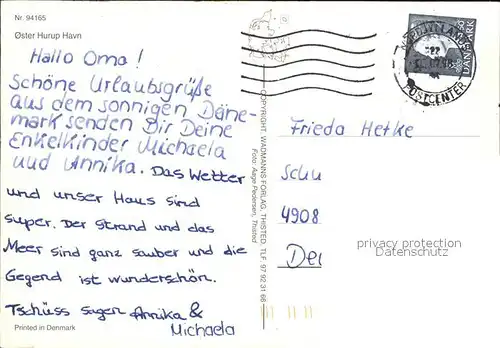 Nr. 94165
Øster Hurup Havn
Hallo Oma!
Schöne Urlaubsgrüße
aus dem sonnigen Däne-
mark senden Dir Deine
Enkelkinder Michaela
und Annika. Das Wetter
und unser Haus sind
super. Der Strand und das
Meer sind ganz sauber und die
Gegend ist wunderschön.
Tschüss sagen Annika &
Michaela
Printed in Denmark
COPYRIGHT. WADMANNS FORLAG, THISTED. TLF. 97 92 31 66
Foto: Aage Pedersen, Thisted
DANMARK
POSTCENTER
Frieda Hetke
Schu
4908
Dei
privacy protection
watermark